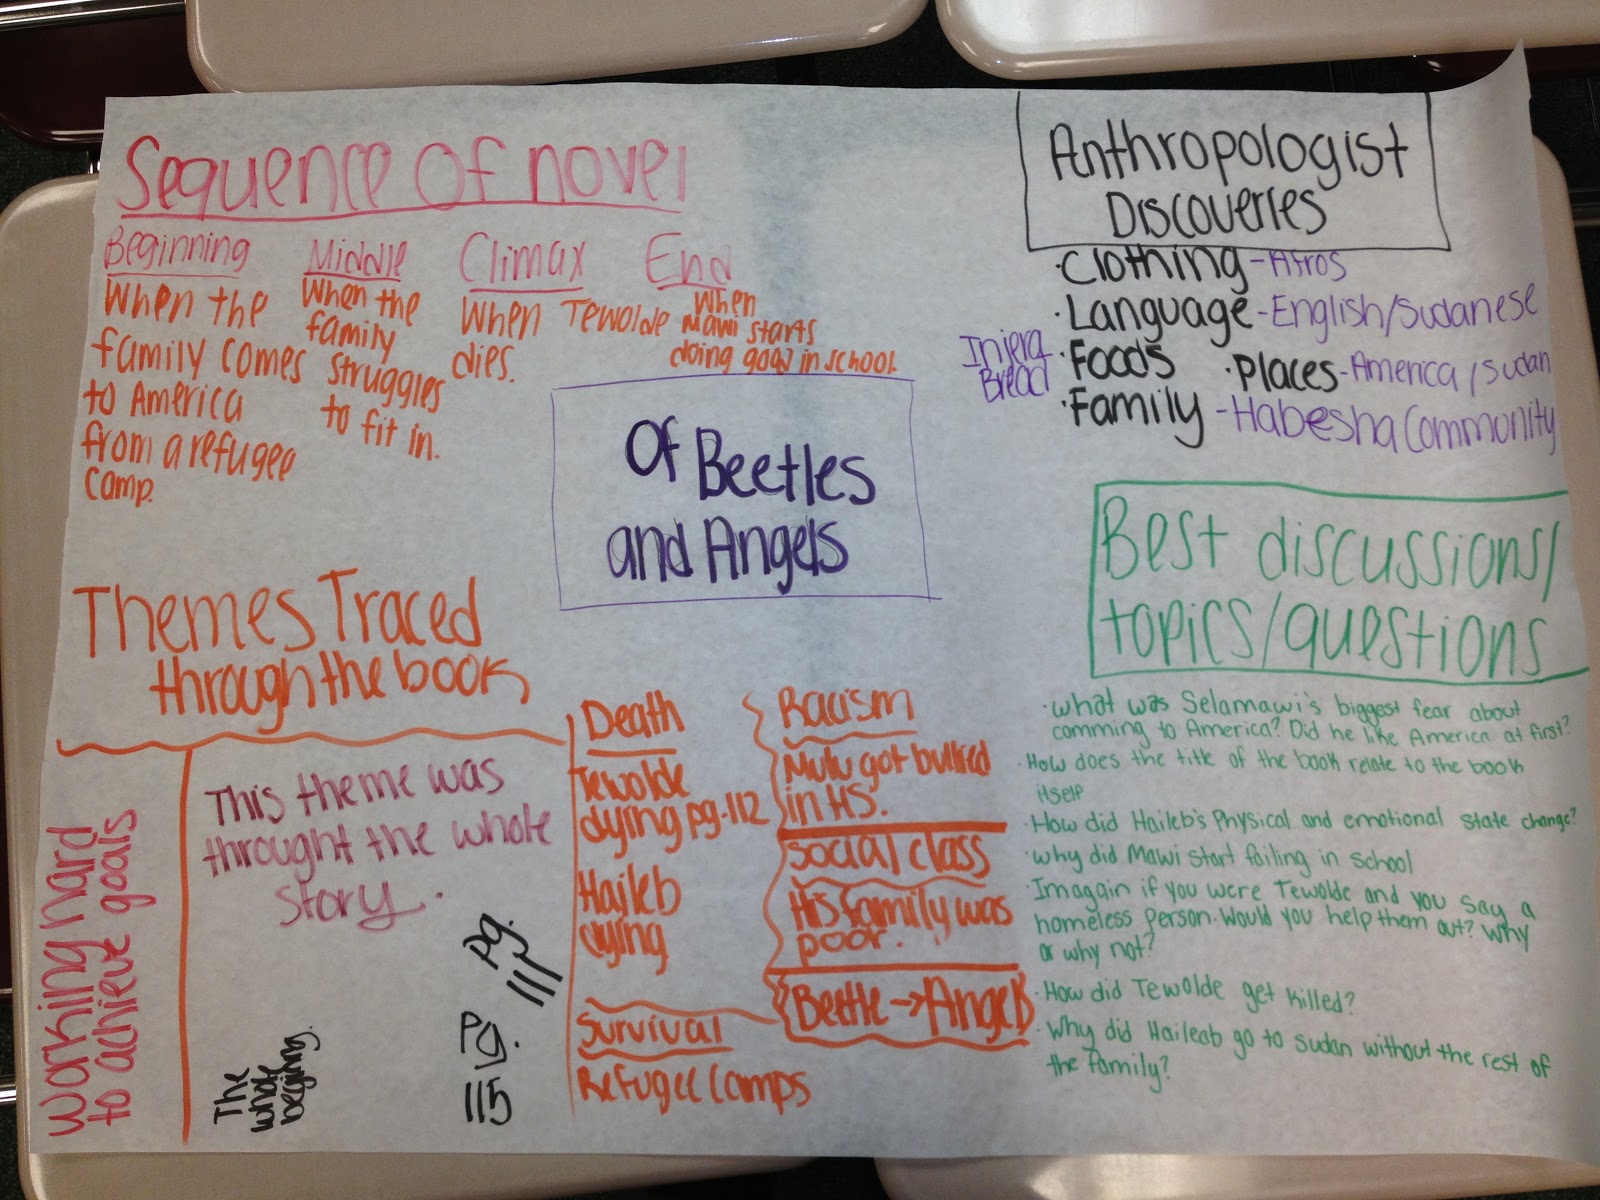 Sequence of novel
Beginning
When the
family comes
to America
from a refugee
camp.
Middle
When the
family
struggles
to fit in.
Climax
When Tewolde
dies.
End
When
Mawi starts
doing good in school.
Anthropologist
Discoveries
·Clothing-Afros
·Language-English/Sudanese
Injera
Bread
·Foods
·Places-America/Sudan
·Family-Habesha Community
Of Beetles
and Angels
Themes Traced
through the book
Working hard
to achieve goals
This theme was
throught the whole
story.
The
whole
begining.
pg.
111
Pg.
115
Death
Tewolde
dying pg-112
Haileb
dying
Survival
Refugee Camps
Racism
Mulu got bullied
in HS.
Social class
His family was
poor.
Beetle→Angels
Best discussions/
topics/questions
·what was Selamawi's biggest fear about
comming to America? Did he like America at first?
·How does the title of the book relate to the book
itself
·How did Haileb's Physical and emotional state change?
·why did Mawi start failing in school
·Imaggin if you were Tewolde and you say a
homeless person. Would you help them out? Why
or why not?
·How did Tewolde get killed?
·Why did Haileab go to Sudan without the rest of
the family?